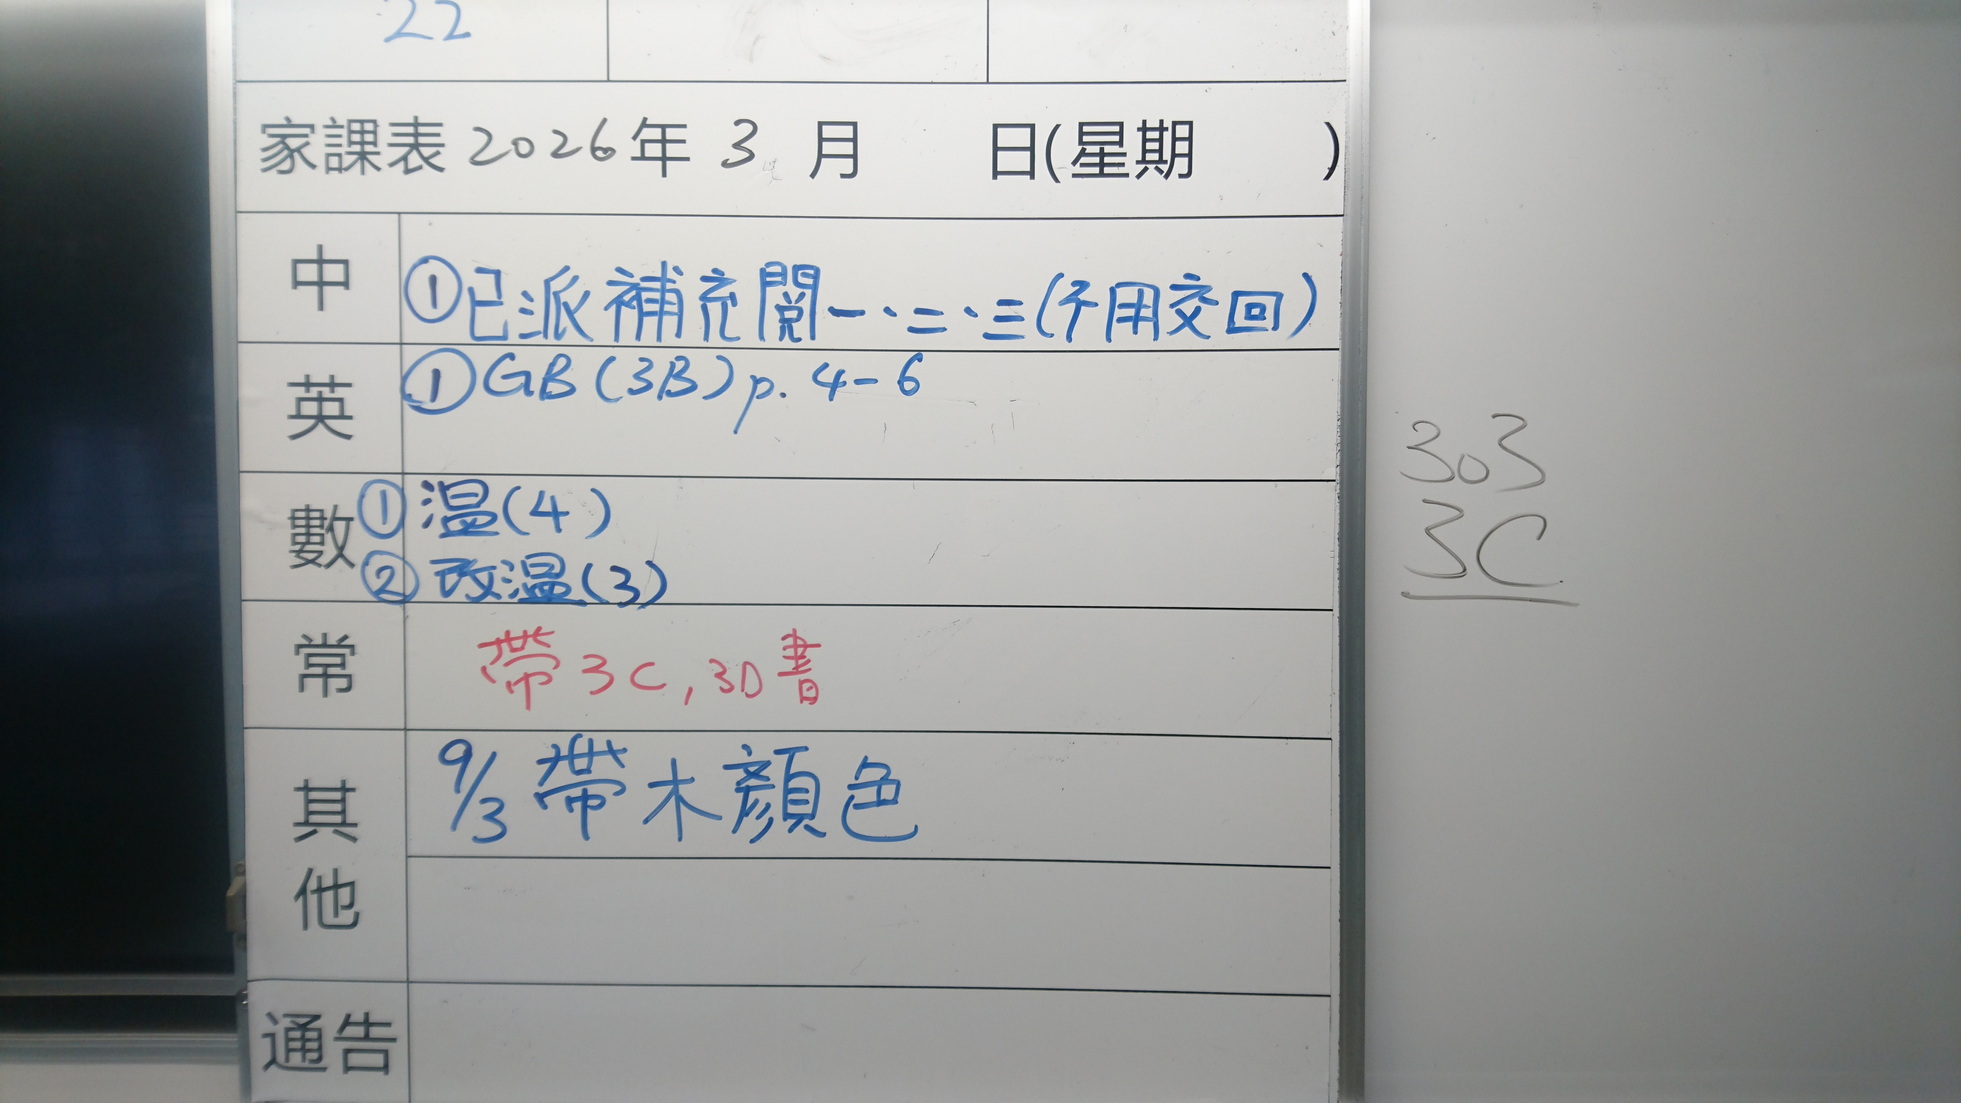 22
家課表 2026年 3 月 日(星期 )
中 ①已派補充閱一、二、三(不用交回)
英 ①GB(3B)p. 4-6
數 ①温(4)
②改温(3)
常 帶3C,3D書
其他 9/3 帶木顏色
通告
303
3C